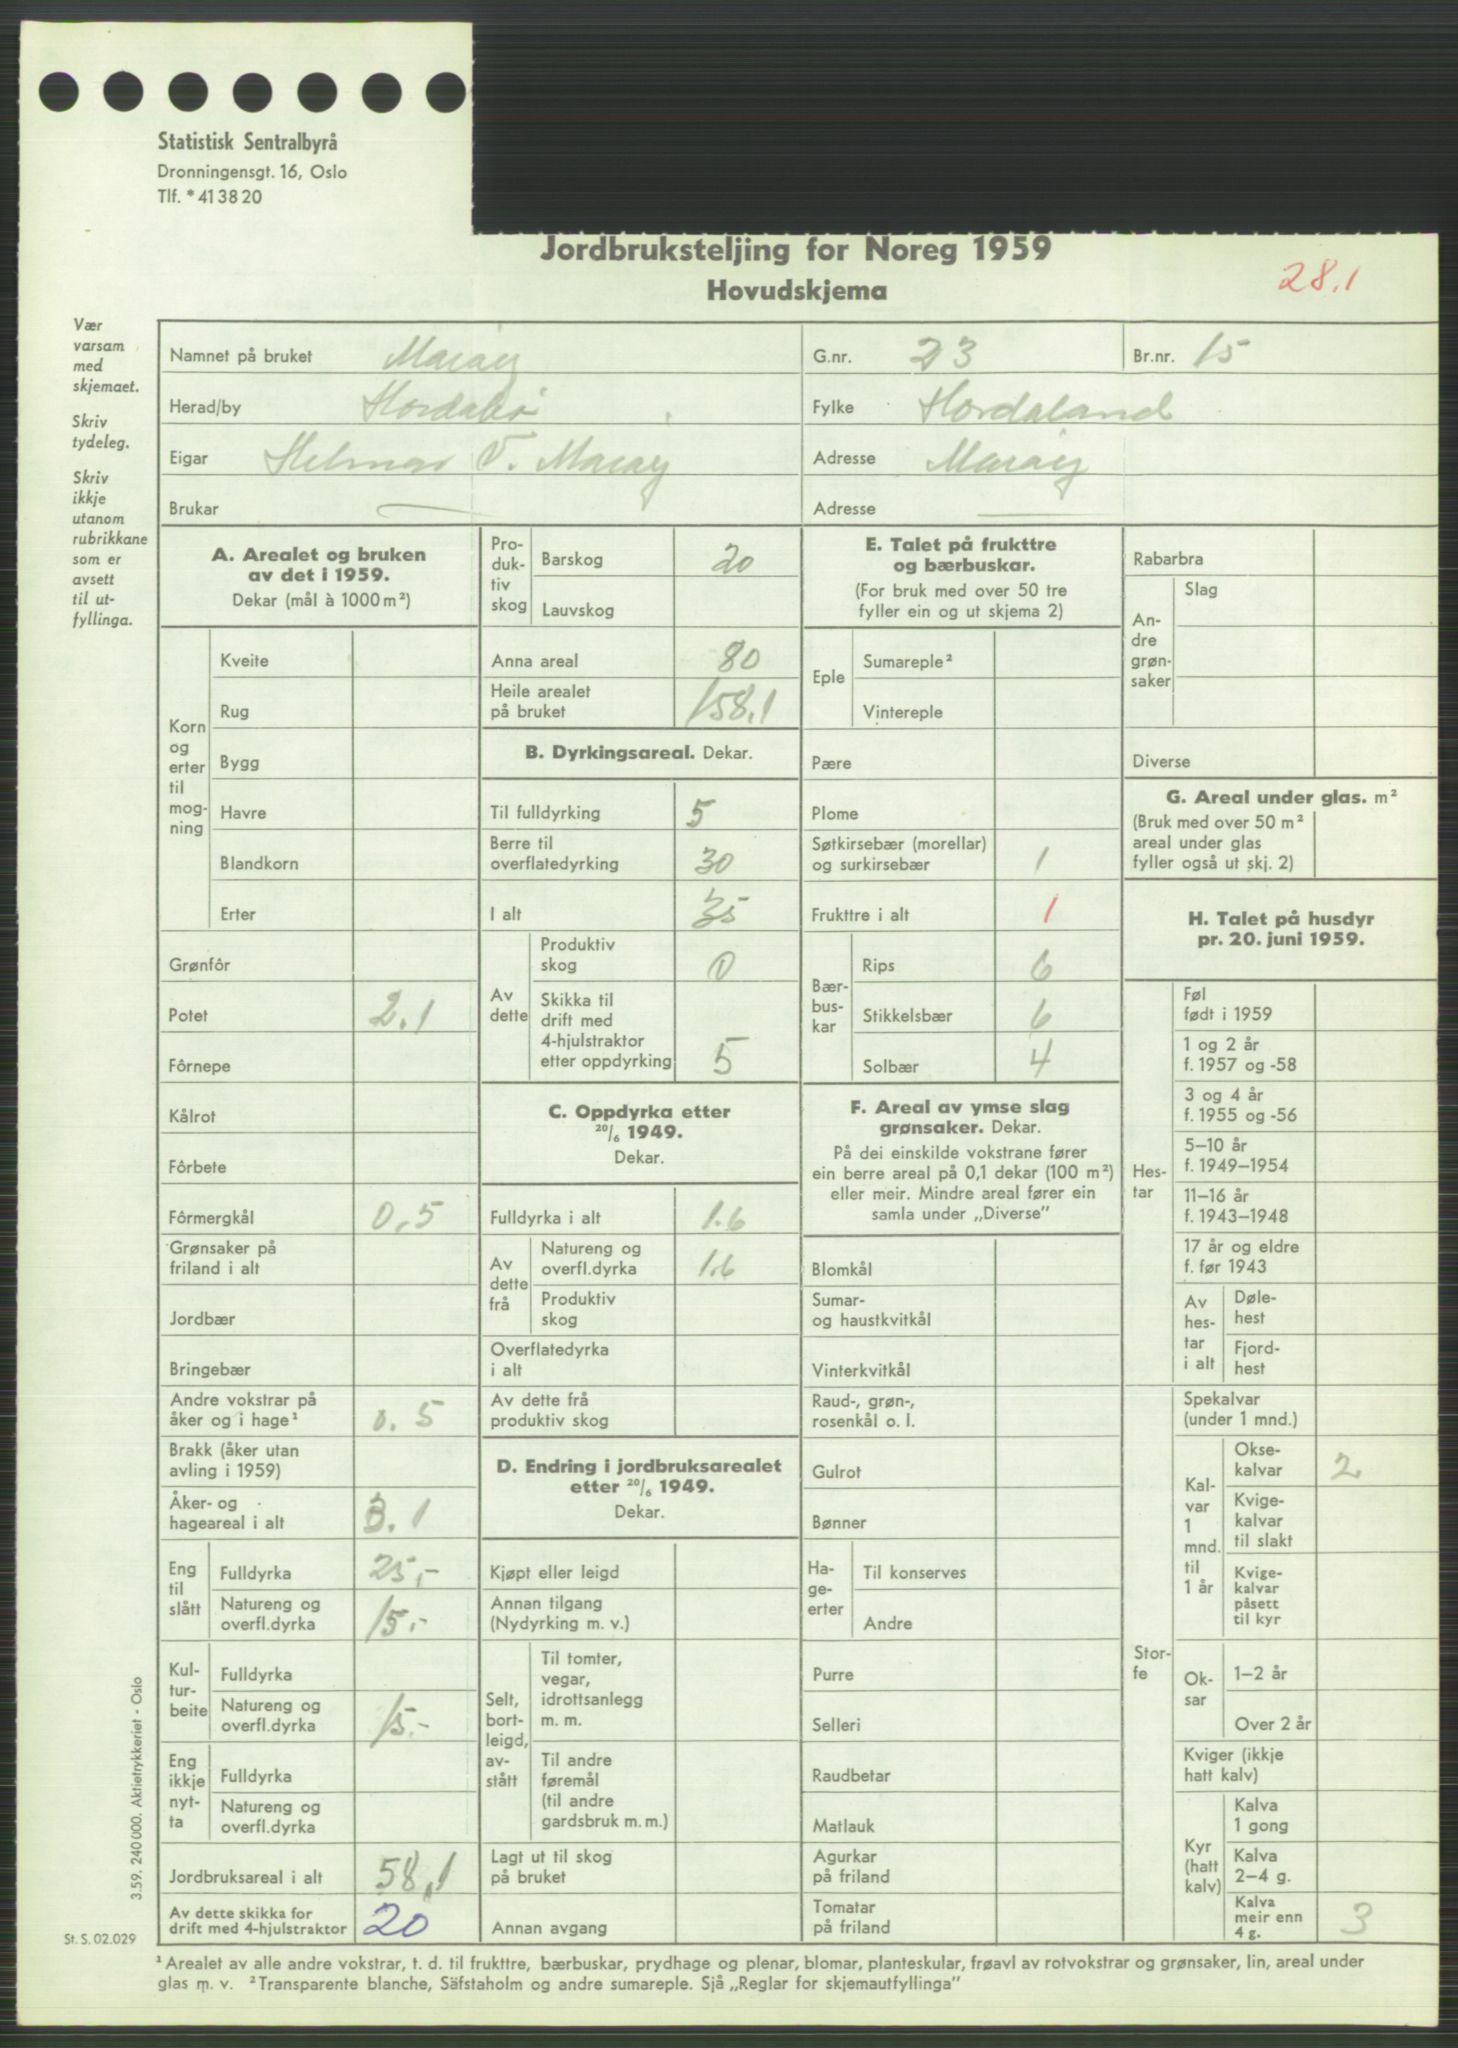 Statistisk Sentralbyrå
Dronningensgt. 16, Oslo
Tlf. * 41 38 20
Jordbruksteljing for Noreg 1959
Hovudskjema
28.1
Vær
varsam
med
skjemaet.
Skriv
tydeleg.
Skriv
ikkje
utanom
rubrikkane
som er
avsett
til ut-
fyllinga.
Namnet på bruket
G.nr. 23
Br.nr. 15
Herad/by Hordabø
Fylke Hordaland
Eigar
Adresse
Brukar —
Adresse —
A. Arealet og bruken
av det i 1959.
Dekar (mål à 1000 m²)
Korn
og
erter
til
mog-
ning
Kveite
Rug
Bygg
Havre
Blandkorn
Erter
Grønfôr
Potet 2.1
Fôrnepe
Kålrot
Fôrbete
Fôrmergkål 0.5
Grønsaker på
friland i alt
Jordbær
Bringebær
Andre vokstrar på
åker og i hage¹ 0.5
Brakk (åker utan
avling i 1959)
Åker- og
hageareal i alt 3.1
Eng
til
slått
Fulldyrka 25,-
Natureng og
overfl.dyrka 15.-
Kul-
tur-
beite
Fulldyrka
Natureng og
overfl.dyrka 15.-
Eng
ikkje
nyt-
ta
Fulldyrka
Natureng og
overfl.dyrka
Jordbruksareal i alt 58,1
Av dette skikka for
drift med 4-hjulstraktor 20
Pro-
duk-
tiv
skog
Barskog 20
Lauvskog
Anna areal 80
Heile arealet
på bruket 158,1
B. Dyrkingsareal. Dekar.
Til fulldyrking 5
Berre til
overflatedyrking 30
I alt 35
Av
dette
Produktiv
skog 0
Skikka til
drift med
4-hjulstraktor
etter oppdyrking 5
C. Oppdyrka etter
20/6 1949.
Dekar.
Fulldyrka i alt 1.6
Av
dette
frå
Natureng og
overfl.dyrka 1.6
Produktiv
skog
Overflatedyrka
i alt
Av dette frå
produktiv skog
D. Endring i jordbruksarealet
etter 20/6 1949.
Dekar.
Kjøpt eller leigd
Annan tilgang
(Nydyrking m. v.)
Selt,
bort-
leigd,
av-
stått
Til tomter,
vegar,
idrottsanlegg
m. m.
Til andre
føremål
(til andre
gardsbruk m. m.)
Lagt ut til skog
på bruket
Annan avgang
E. Talet på frukttre
og bærbuskar.
(For bruk med over 50 tre
fyller ein og ut skjema 2)
Eple
Sumareple²
Vintereple
Pære
Plome
Søtkirsebær (morellar)
og surkirsebær 1
Frukttre i alt 1
Bær-
bus-
kar
Rips 6
Stikkelsbær 6
Solbær 4
F. Areal av ymse slag
grønsaker. Dekar.
På dei einskilde vokstrane fører
ein berre areal på 0,1 dekar (100 m²)
eller meir. Mindre areal fører ein
samla under „Diverse”
Blomkål
Sumar-
og haustkvitkål
Vinterkvitkål
Raud-, grøn-,
rosenkål o. l.
Gulrot
Bønner
Ha-
ge-
erter
Til konserves
Andre
Purre
Selleri
Raudbetar
Matlauk
Agurkar
på friland
Tomatar
på friland
Rabarbra
An-
dre
grøn-
saker
Slag
Diverse
G. Areal under glas. m²
(Bruk med over 50 m²
areal under glas
fyller også ut skj. 2)
H. Talet på husdyr
pr. 20. juni 1959.
Hes-
tar
Føl
født i 1959
1 og 2 år
f. 1957 og -58
3 og 4 år
f. 1955 og -56
5–10 år
f. 1949–1954
11–16 år
f. 1943–1948
17 år og eldre
f. før 1943
Av
hes-
tar
i alt
Døle-
hest
Fjord-
hest
Stor-
fe
Spekalvar
(under 1 mnd.)
Kal-
var
1
mnd.
til
1 år
Okse-
kalvar 2
Kvige-
kalvar
til slakt
Kvige-
kalvar
påsett
til kyr
Ok-
sar
1–2 år
Over 2 år
Kviger (ikkje
hatt kalv)
Kyr
(hatt
kalv)
Kalva
1 gong
Kalva
2–4 g.
Kalva
meir enn
4 g. 3
3.59. 240 000. Aktietrykkeriet - Oslo
St. S. 02.029
¹ Arealet av alle andre vokstrar, t. d. til frukttre, bærbuskar, prydhage og plenar, blomar, planteskular, frøavl av rotvokstrar og grønsaker, lin, areal under
glas m. v. ² Transparente blanche, Säfstaholm og andre sumareple. Sjå „Reglar for skjemautfyllinga”